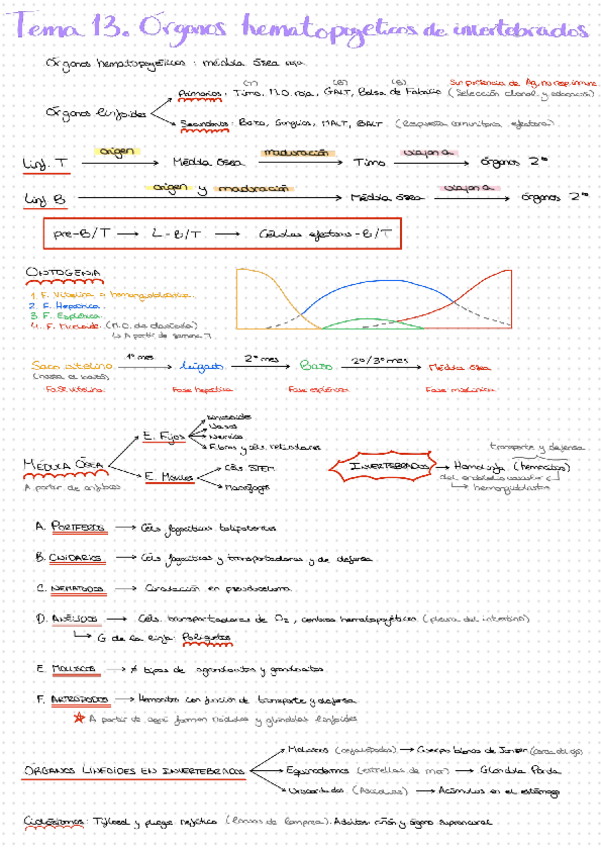 Tema 13. Órganos hematopoyéticos de invertebrados
Órganos hematopoyéticos: médula ósea roja
Órganos linfoides
(T) (B) (B) Sin presencia de Ag, no resp. inmune
Primarios: Timo, M.O. roja, GALT, Bolsa de Fabricio (Selección clonal y)
Secundarios: Bazo, Ganglios, MALT, BALT (Respuesta efectora)
Linf. T origen Médula ósea maduración Timo viajan a órganos 2º
Linf B origen y maduración Médula ósea viajan a órganos 2º
pre-B/T → L-B/T → Células efectoras-B/T
ONTOGENIA
1. F. Vitelina o
2. F. Hepática
3. F. Esplénica
4. F. (M.O. de clavícula)
↳ A partir de semana
Saco vitelino 1º mes Hígado 2º mes Bazo 2º/3º mes Médula ósea
Fase vitelina Fase hepática Fase esplénica Fase
MÉDULA ÓSEA
A partir de anfibios
E. Fijos
Sinusoides
Vasos
Nervios
Fibras y céls. reticulares
E. Móviles
Céls STEM
Macrófagos
INVERTEBRADOS → Hemolinfa (hemocitos)
transporte y defensa
del endotelio vascular
↳ hemangioblastos
A. PORÍFEROS → Céls fagocíticas totipotentes
B. CNIDARIOS → Céls fagocíticas y transportadoras y de defensa
C. NEMATODOS → Circulación en pseudoceloma
D. ANÉLIDOS → Céls. transportadoras de O2, centros hematopoyéticos (pleura del intestino)
↳ G de la linfa: Poliquetos
E. MOLUSCOS → ≠ tipos de agranulocitos y granulocitos
F. ARTRÓPODOS → Hemocitos con función de transporte y defensa
☆ A partir de aquí forman nódulos y glándulas linfoides
ÓRGANOS LINFOIDES EN INVERTEBRADOS
Moluscos (cefalópodos) → Cuerpo blanco de (cerca del ojo)
Equinodermos (estrellas de mar) → Glándula Parda
Urocordados (Ascidias) → Acúmulos en el estómago
Ciclóstomos: Tiflosol y pliegue nefrítico (larvas de lamprea). Adultos: riñón y órgano supraneural